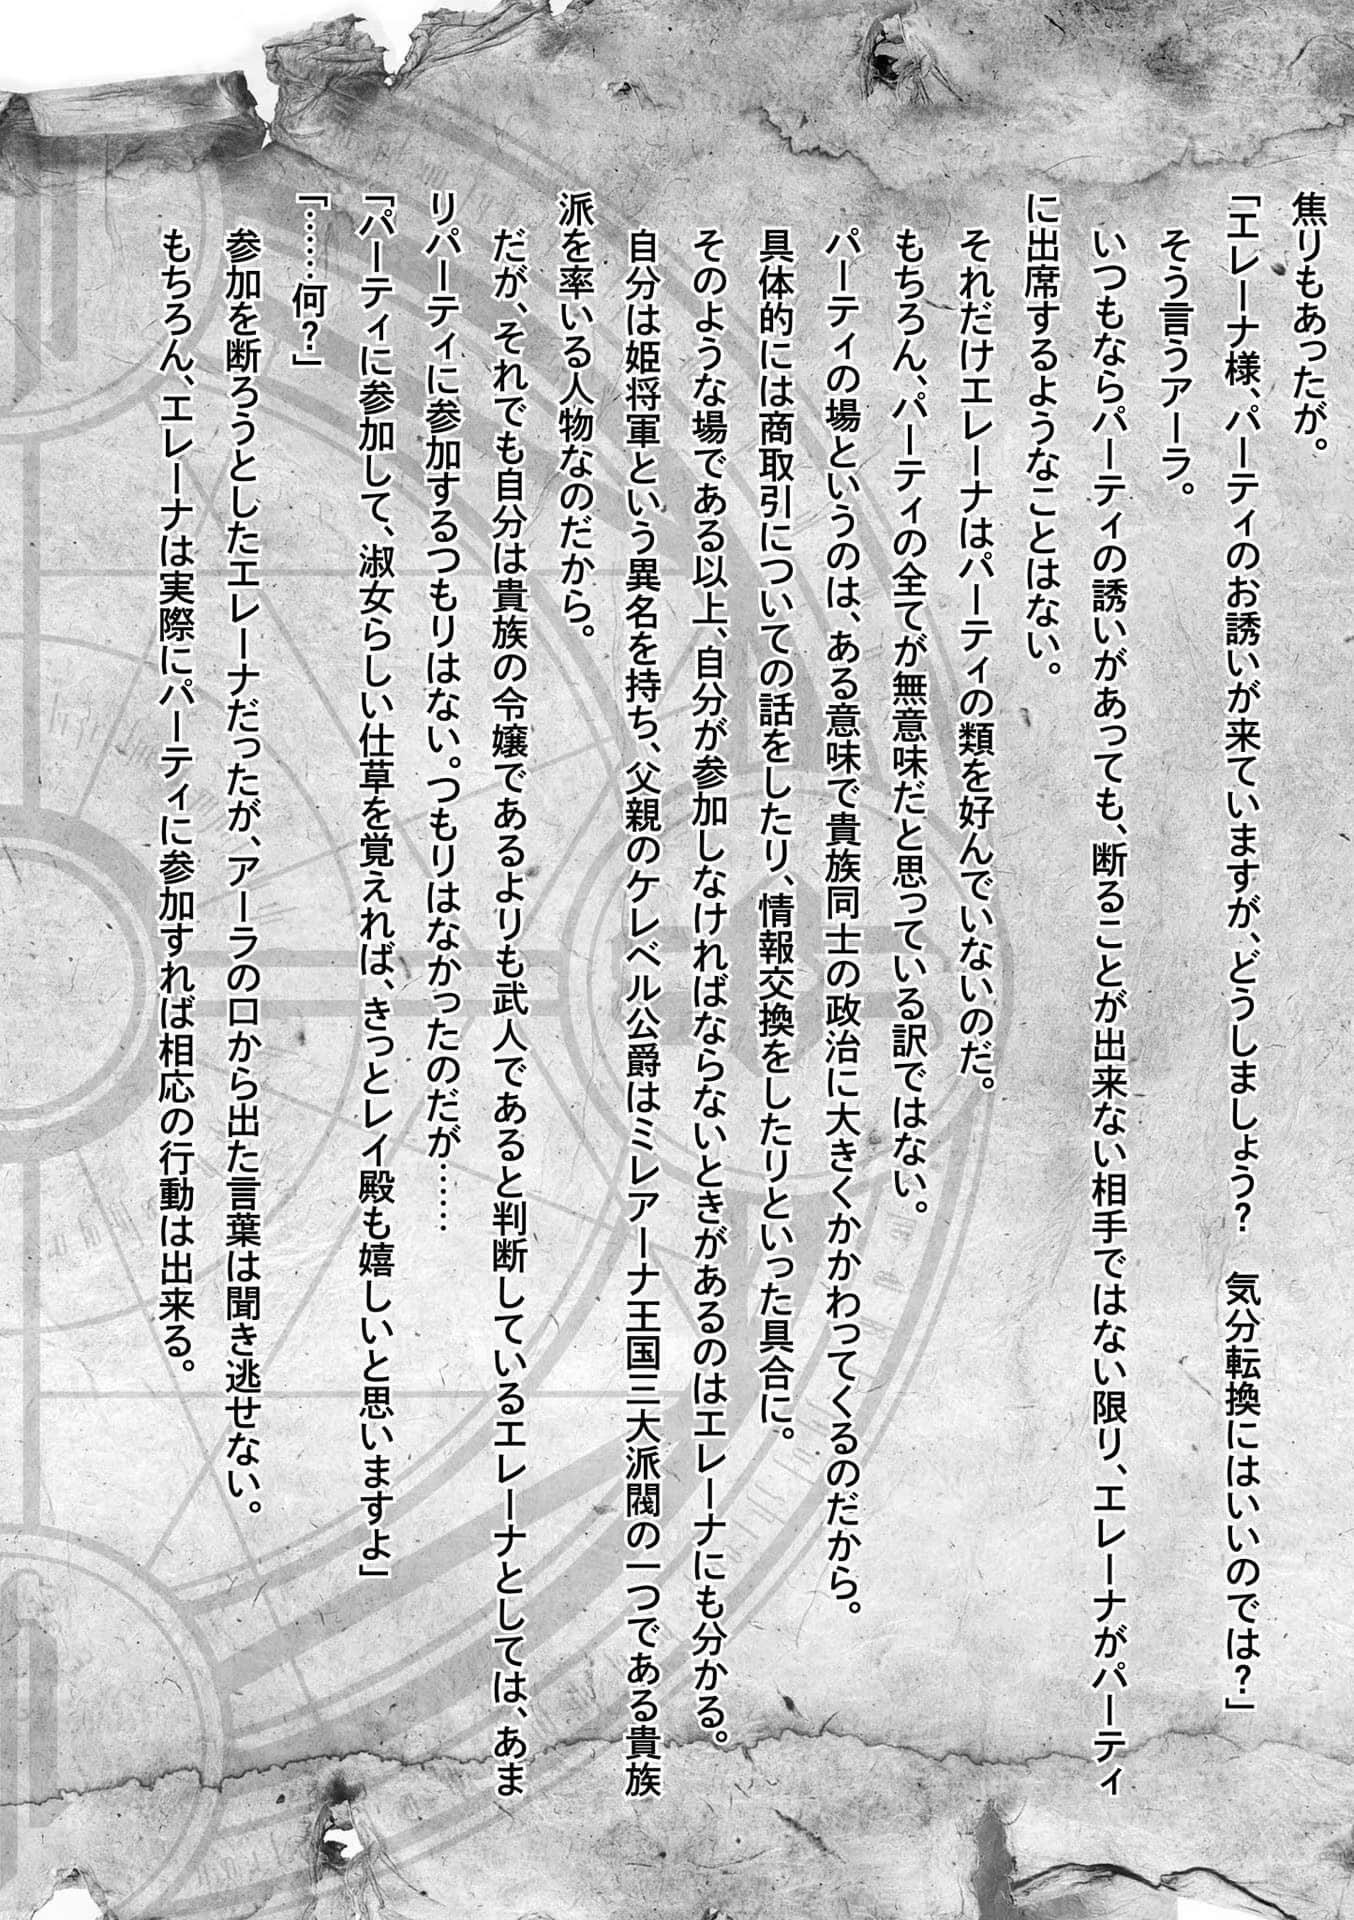 焦りもあったが。
「エレーナ様、パーティのお誘いが来ていますが、どうしましょう？　気分転換にはいいのでは？」
そう言うアーラ。
いつもならパーティの誘いがあっても、断ることが出来ない相手ではない限り、エレーナがパーティ
に出席するようなことはない。
それだけエレーナはパーティの類を好んでいないのだ。
もちろん、パーティの全てが無意味だと思っている訳ではない。
パーティの場というのは、ある意味で貴族同士の政治に大きくかかわってくるのだから。
具体的には商取引についての話をしたり、情報交換をしたりといった具合に。
そのような場である以上、自分が参加しなければならないときがあるのはエレーナにも分かる。
自分は姫将軍という異名を持ち、父親のケレベル公爵はミレアーナ王国三大派閥の一つである貴族
派を率いる人物なのだから。
だが、それでも自分は貴族の令嬢であるよりも武人であると判断しているエレーナとしては、あま
りパーティに参加するつもりはない。つもりはなかったのだが……
「パーティに参加して、淑女らしい仕草を覚えれば、きっとレイ殿も嬉しいと思いますよ」
「……何？」
参加を断ろうとしたエレーナだったが、アーラの口から出た言葉は聞き逃せない。
もちろん、エレーナは実際にパーティに参加すれば相応の行動は出来る。